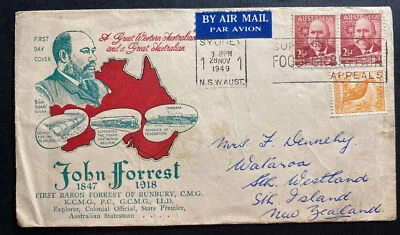 FIRST
DAY
COVER
A Great Western Australian
and a Great Australian
BY AIR MAIL
PAR AVION
SYDNEY
1 - PM
28 NOV
1949
N.S.W. AUST.
1 1
FOO
APPEALS
John Forrest
1847 1918
FIRST BARON FORREST OF BUNBURY, C.M.G.
K.C.M.G., P.C., G.C.M.G., LL.D.
Explorer, Colonial Official, State Premier,
Australian Statesman
Mrs F. Dennehy
Wataroa
Sth. Westland
Sth Island
New Zealand